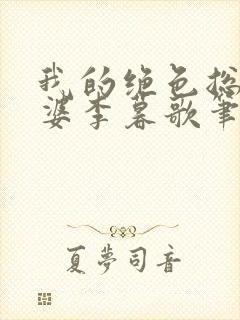 我的绝色总
婆李慕歌笔
夏梦司音